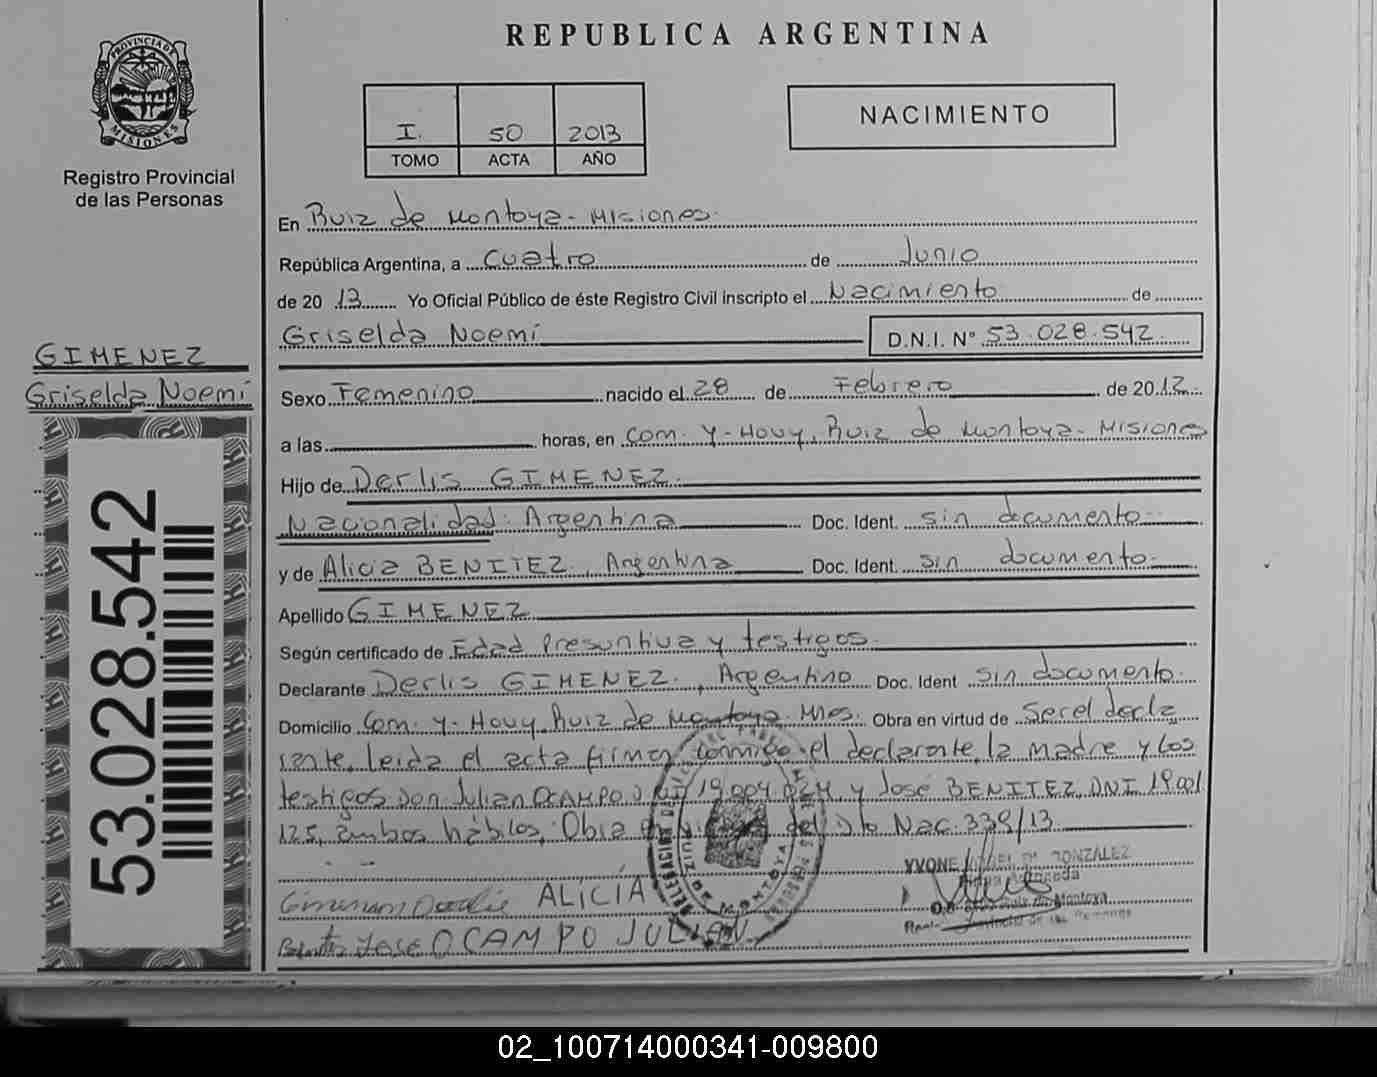 PROVINCIA DE
MISIONES
Registro Provincial
de las Personas
GIMENEZ
Griselda Noemí
53.028.542
REPUBLICA ARGENTINA
I. 50 2013
TOMO ACTA AÑO
NACIMIENTO
En Ruiz de Montoya - Misiones.
República Argentina, a cuatro de Junio
de 20 13 Yo Oficial Público de éste Registro Civil inscripto el Nacimiento de
Griselda Noemí D.N.I. Nº 53.028.542
Sexo Femenino nacido el 28 de Febrero de 20.12
a las horas, en Com. Y-Hovy, Ruiz de Montoya - Misiones
Hijo de Derlis GIMENEZ.
Nacionalidad: Argentina Doc. Ident. sin documento
y de Alicia BENITEZ, Argentina Doc. Ident. sin documento
Apellido GIMENEZ
Según certificado de Edad Presuntiva y testigos.
Declarante Derlis GIMENEZ, Argentino Doc. Ident sin documento.
Domicilio Com. Y-Hovy, Ruiz de Montoya. Mnes. Obra en virtud de Ser el decla
rante, leida el acta firman conmigo el declarante, la madre y los
testigos Don Julian OCAMPO, D.N.I 19.004.024, y José BENITEZ, DNI 19.001
125, ambos hábiles. Obra en virtud del Dto Nac. 339/13
YVONE GONZÁLEZ
ALICIA
Ruiz de Montoya
José OCAMPO JULIAN
DELEGACION
RUIZ DE MONTOYA
02_100714000341-009800